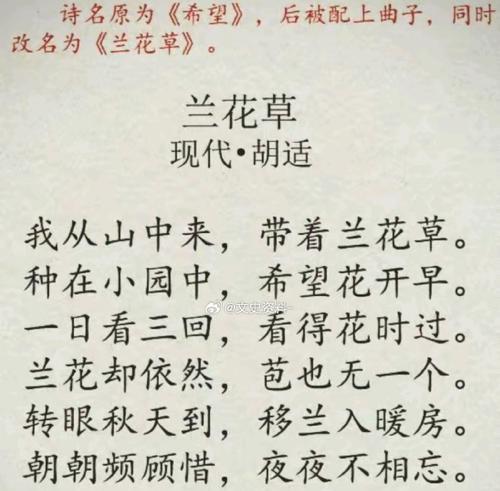 诗名原为《希望》，后被配上曲子，同时
改名为《兰花草》。
兰花草
现代•胡适
我从山中来，带着兰花草。
种在小园中，希望花开早。
@文史资料
一日看三回，看得花时过。
兰花却依然，苞也无一个。
转眼秋天到，移兰入暖房。
朝朝频顾惜，夜夜不相忘。